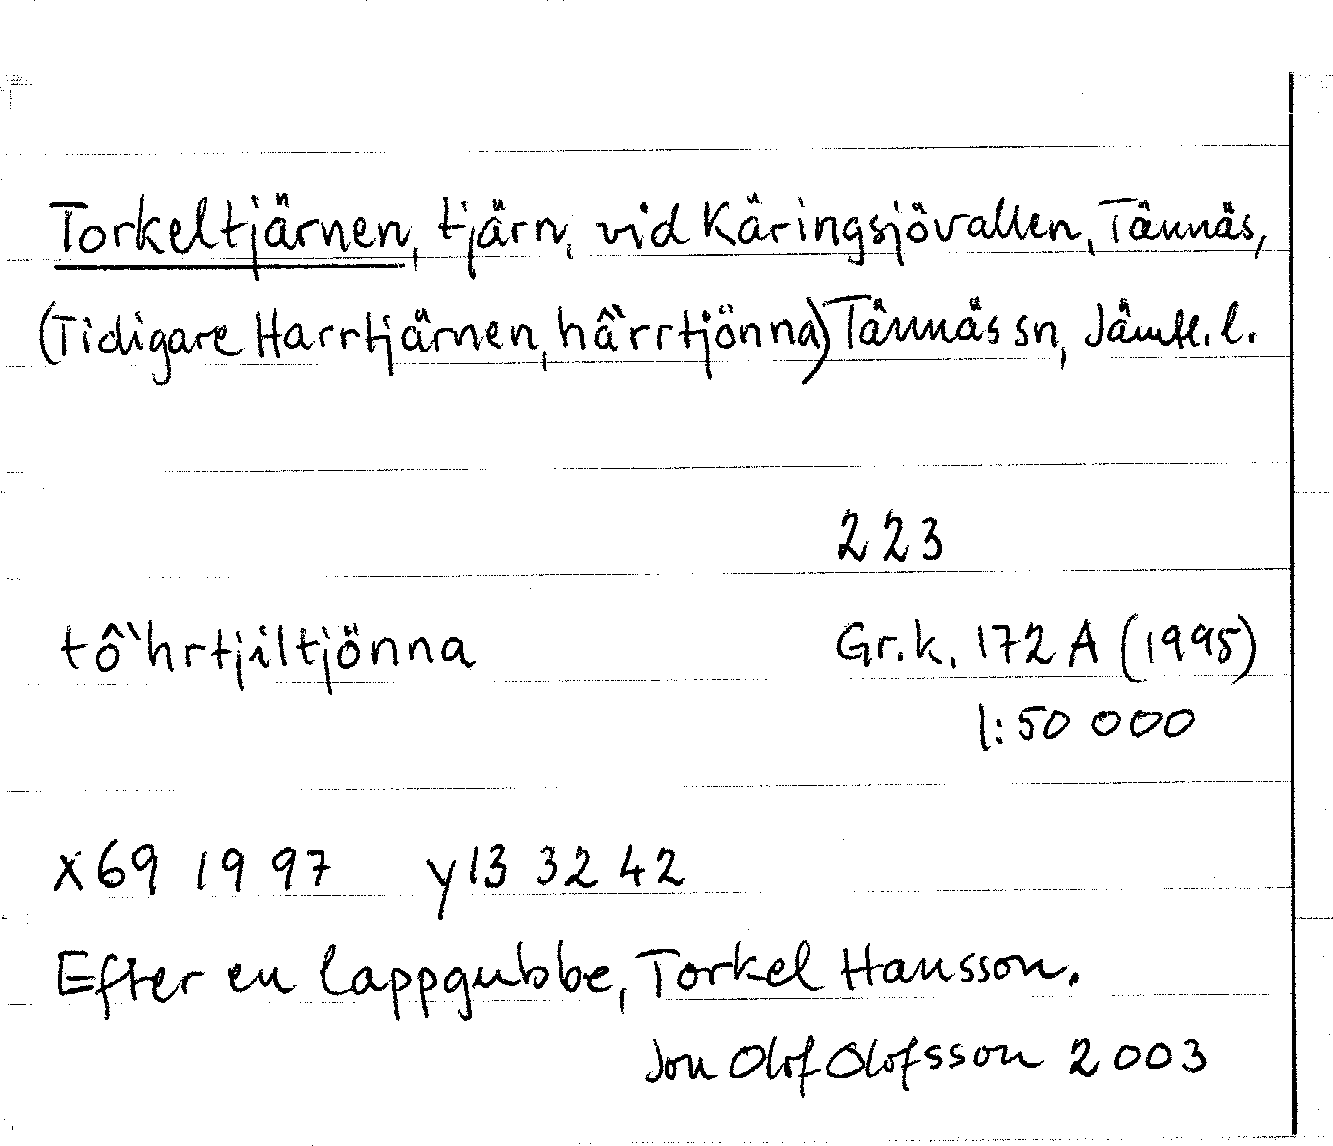 Torkeltjärnen, tjärn, vid Käringsjövallen, Tännäs,
(Tidigare Harrtjärnen, hâ`rrtjönna) Tännäs sn, Jämtl. l.
223
tô`hrtjiltjönna Gr.k. 172 A (1995)
1:50 000
x 69 19 97 y 13 32 42
Efter en lappgubbe, Torkel Hansson.
Jon Olof Olofsson 2003